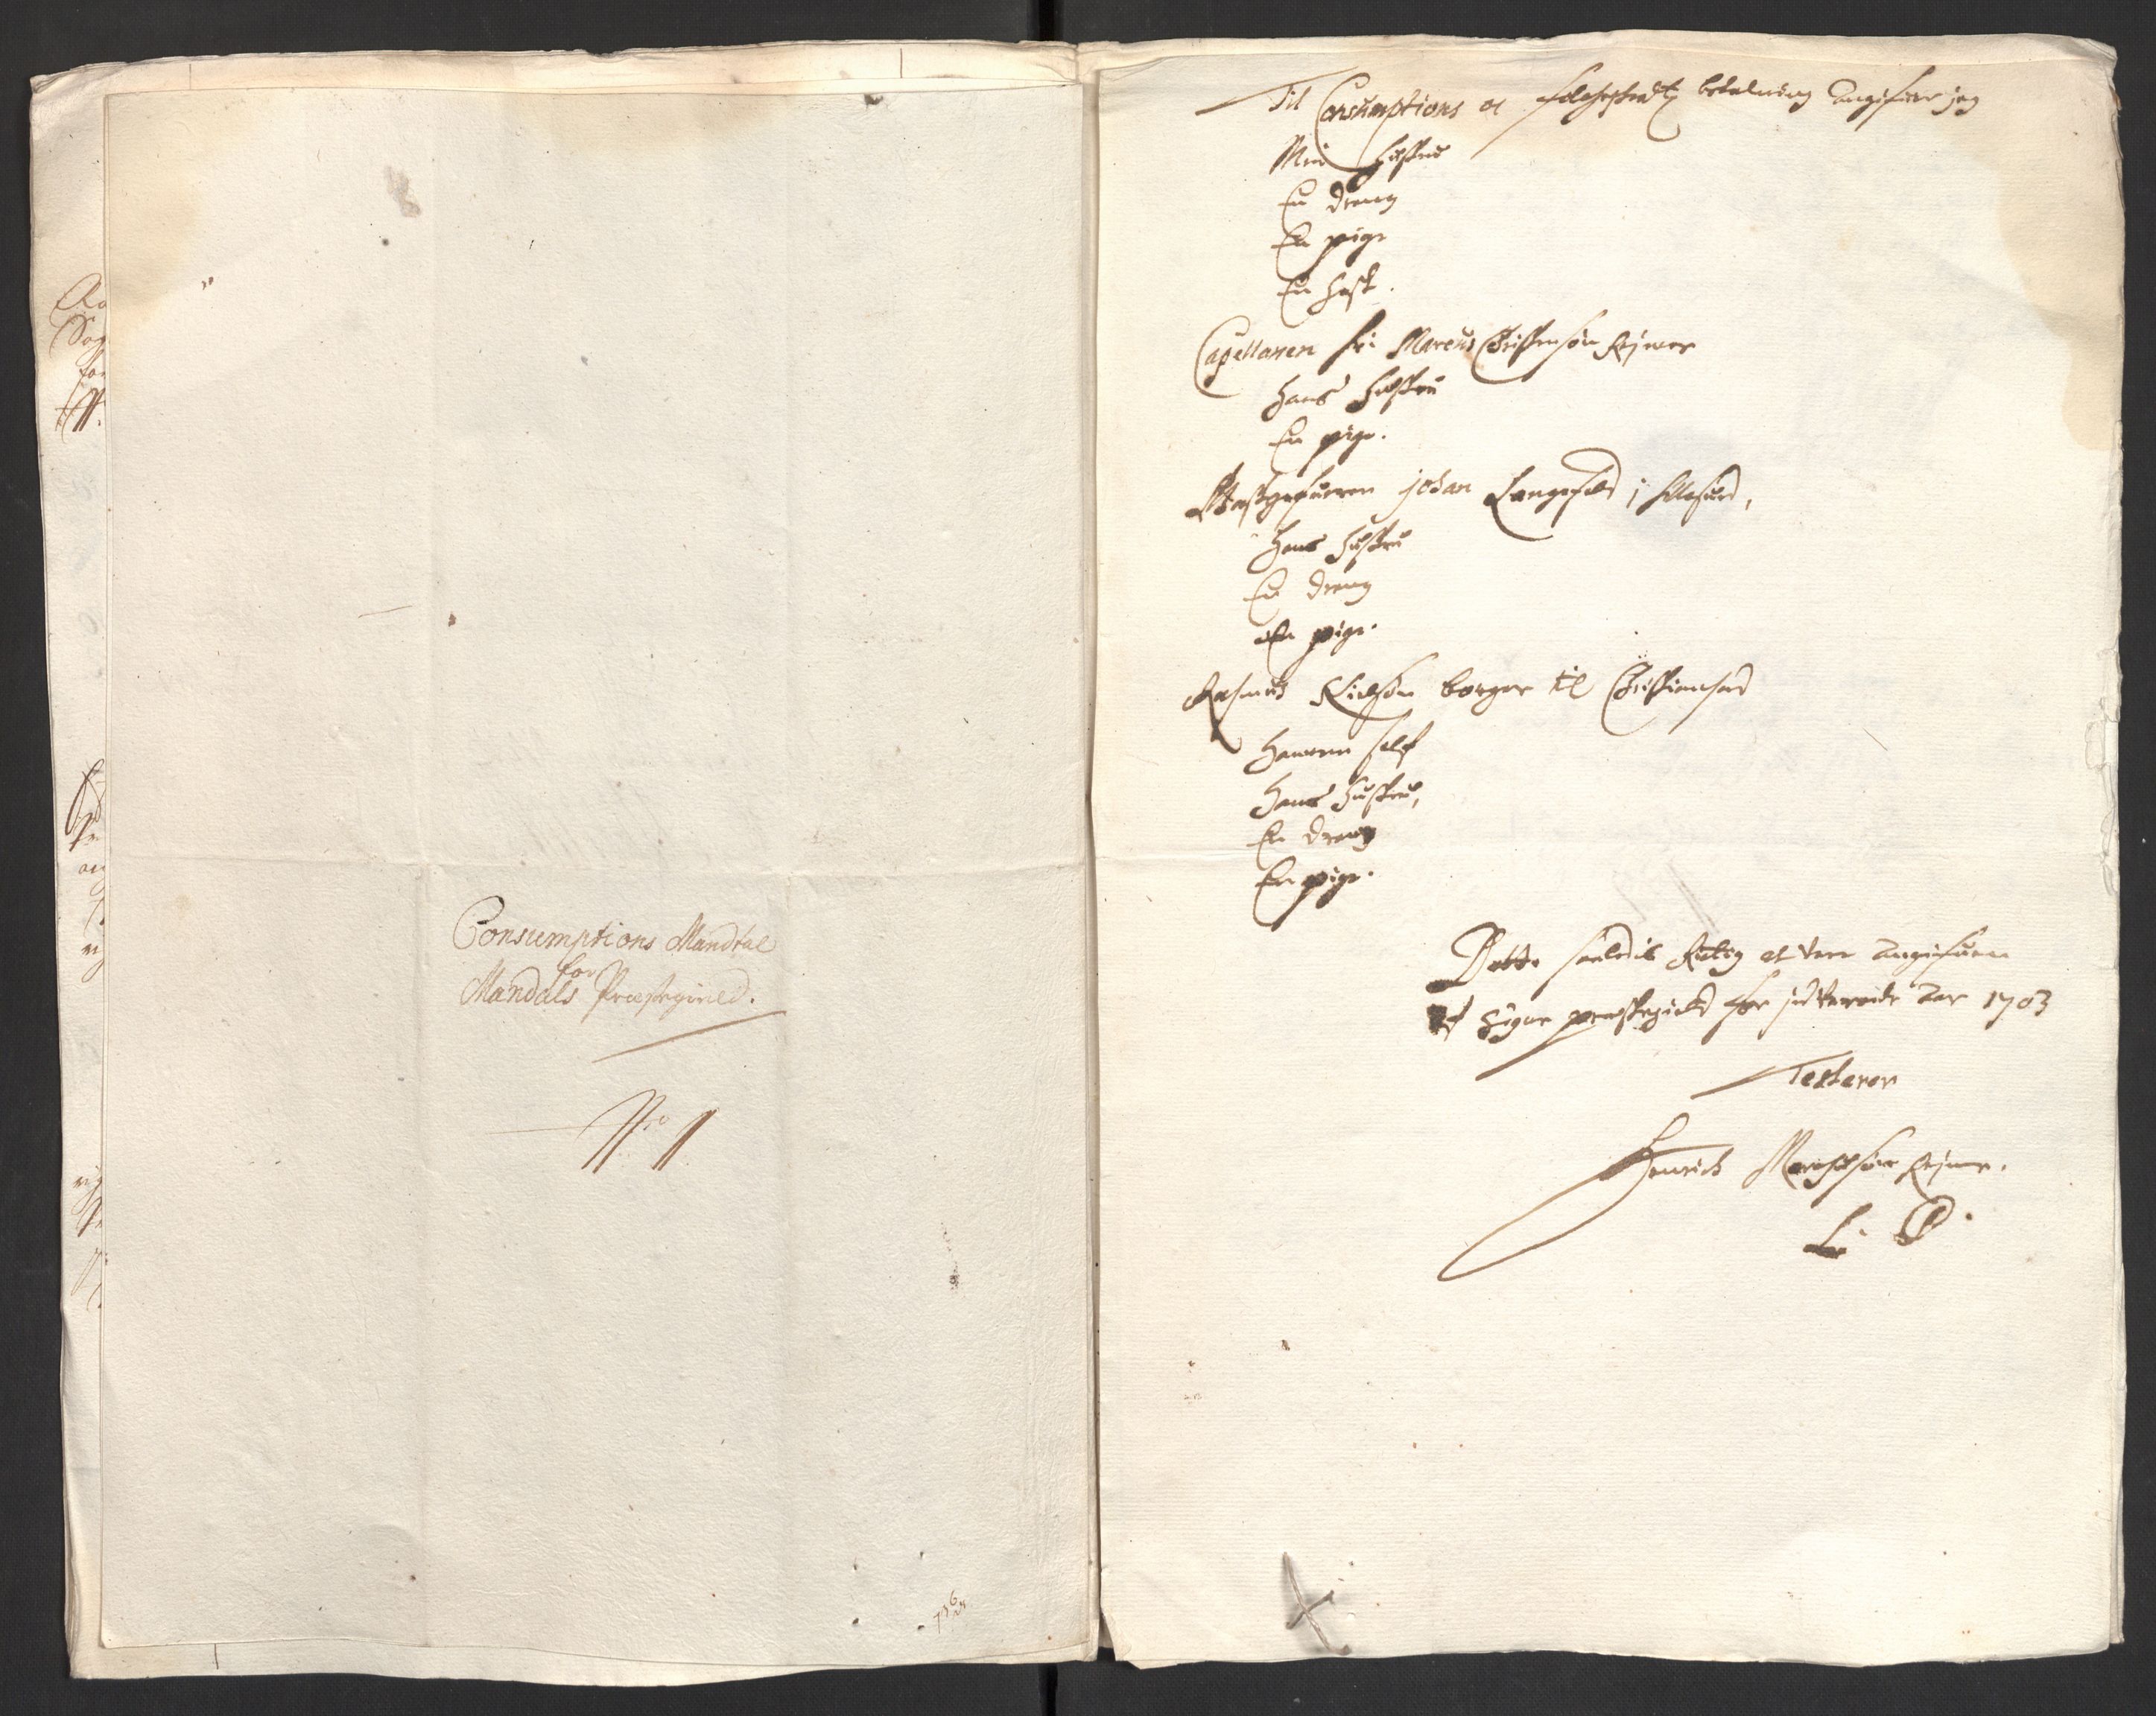 Consumptions Mandtal
for
Mandals Præstegield.
No 1
Til Consumptions oc folcheskatz betalning angifuer jeg
Min hustru
En dreng
En pige
En hest.
Capellanen hr: Marcus Christensøn Rejmer
hans hustru
En pige.
Johan Langefeld i
hans hustru
En dreng
En pige.
Rasmus Nielsøn borger til Christiansand
hannem self
hans hustru,
En dreng
En pige.
Dette saaledis rictig at vere angifuen
af præstegield for indeverende aar 1703
Testerer
Henrich Rejmer.